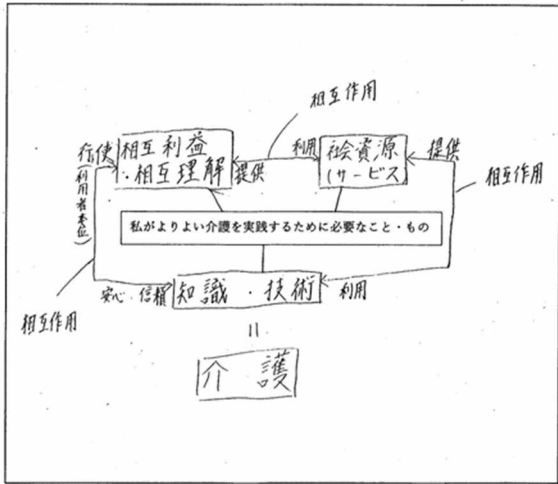 相互作用
行使
相互利益
・相互理解
提供
利用
社会資源
(サービス)
提供
相互作用
(利用者本位)
私がよりよい介護を実践するために必要なこと・もの
安心・信頼
知識・技術
利用
相互作用
=
介護